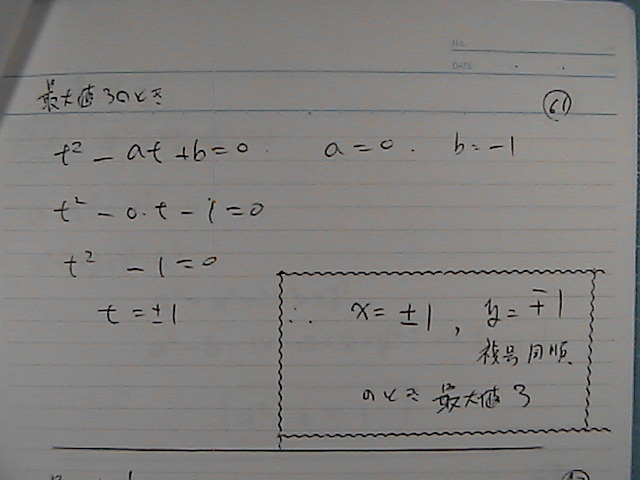 No.
DATE
最大値3のとき
61
t² - at + b = 0. a = 0. b = -1
t² - 0·t - 1 = 0
t² - 1 = 0
t = ±1
∴ x = ±1, y = ∓1
複号同順
のとき 最大値 3